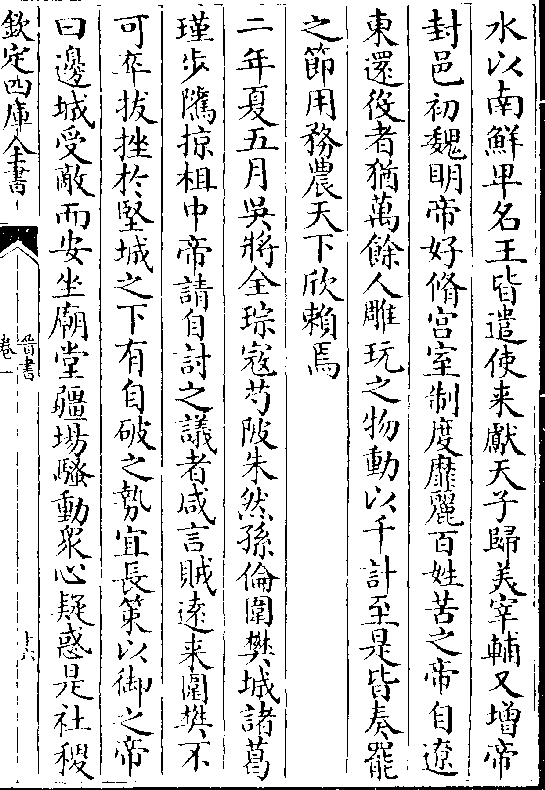 水以南鮮卑名王皆遣使来獻天子歸美宰輔又增帝
封邑初魏明帝好脩宫室制度靡麗百姓苦之帝自遼
東還役者猶萬餘人雕玩之物動以千計至是皆奏罷
之節用務農天下欣賴焉
二年夏五月吳將全琮寇芍陂朱然孫倫圍樊城諸葛
瑾步隲掠柤中帝請自討之議者咸言賊逺来圍樊不
可卒拔挫於堅城之下有自破之勢宜長策以御之帝
曰邊城受敵而安坐廟堂疆埸騷動衆心疑惑是社稷
欽定四庫全書
晉書
卷一
十六